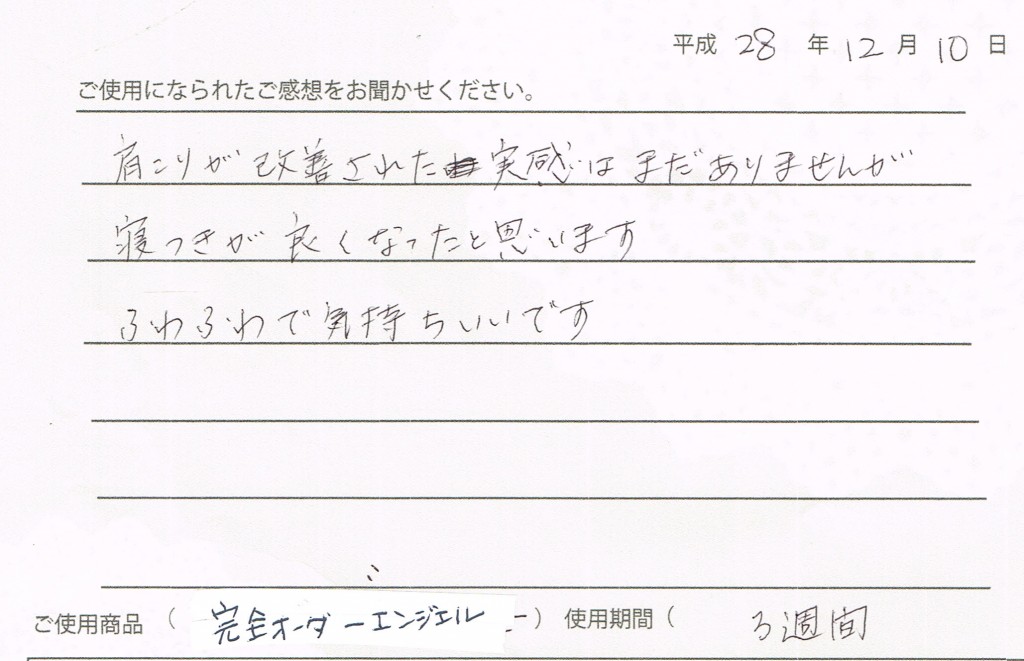 平成 28 年 12 月 10 日
ご使用になられたご感想をお聞かせください。
肩こりが改善された実感はまだありませんが
寝つきが良くなったと思います
ふわふわで気持ちいいです
ご使用商品 ( 完全オーダーエンジェル ) 使用期間 ( 3週間